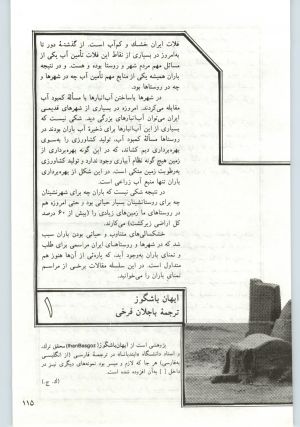 فلات ایران خشك و کم‌آب است. از گذشتهٔ دور تا
به‌امروز در بسیاری از نقاط این فلات تأمین آب یکی از
مسائل مهم مردم شهر و روستا بوده و هست. و در نتیجه
باران همیشه یکی از منابع مهم تأمین آب چه در شهرها و
چه در روستاها بود.
در شهرها باساختن آب‌انبارها با مسألهٔ کمبود آب
مقابله می‌کردند. امروزه در بسیاری از شهرهای قدیمی
ایران می‌توان آب‌انبارهای بزرگی دید. شکی نیست که
بسیاری از این آب‌انبارها برای ذخیرهٔ آب باران بودند در
روستاها مسألهٔ کمبود آب، تولید کشاورزی را به‌سوی
بهره‌برداری دیم کشاند، که در این گونه بهره‌برداری از
زمین هیچ گونه نظام آبیاری وجود ندارد و تولید کشاورزی
به‌رطوبت زمین متکی است. در این شکل از بهره‌برداری
باران تنها منبع آب زراعی است.
در نتیجه شکی نیست که باران چه برای شهرنشینان
چه برای روستانشینان بسیار حیاتی بود و حتی امروزه هم
در روستاهای ما زمین‌های زیادی را (بیش از ۶۰ درصد
کل اراضی زیرکشت) می‌کارند.
خشکسالی‌های متناوب و حیاتی بودن باران سبب
شد که در شهرها و روستاهای ایران مراسمی برای طلب
و تمنای باران به‌وجود آید، که پاره‌ئی از آن‌ها هنوز هم
متداول است. در این سلسله مقالات برخی از مراسم
تمنای باران را می‌خوانید.
ایهان باشگوز
ترجمهٔ باجلان فرخی
۱
پژوهشی است از ایهان‌باشگوز (IlhanBasgoz) محقق ترك،
و استاد دانشگاه ایندیانا، در ترجمهٔ فارسی (از انگلیسی
به‌فارسی) هر جا که لازم و میسر بود نمونه‌های دیگری نیز در
داخل [ ] به‌آن افزوده شده است.
(ك. ج.)
۱۱۵